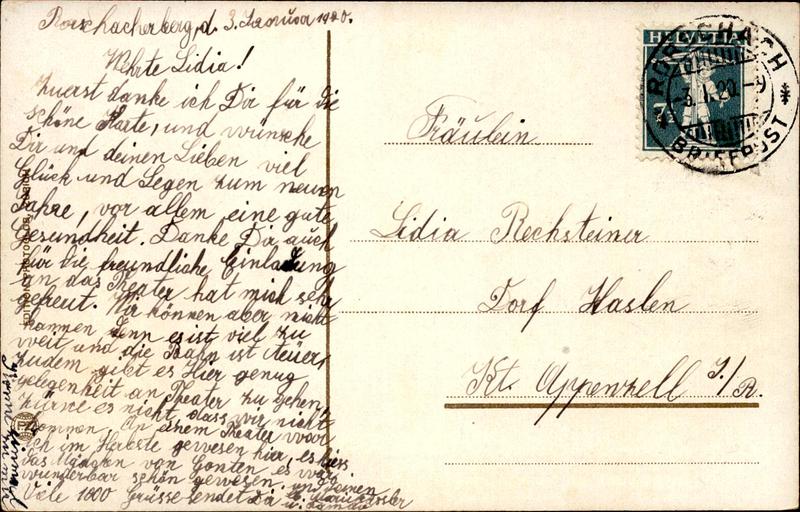 Rorschacherberg, d. 3. Januar 1920.
Wehrte Lidia!
Zuerst danke ich Dir für die
schöne Karte, und wünsche
Dir und deinen Lieben viel
Glück und Segen zum neuen
Jahre, vor allem eine gute
Gesundheit. Danke Dir auch
für die freundliche Einladung
an das Theater hat mich sehr
gefreut. Wir können aber nicht
kommen denn es ist viel zu
weit und die Bahn ist teuer,
zudem gibt es Hier genug
gelegenheit an Theater zu gehen
Zürne es nicht, dass wir nicht
kommen. An einem Theater war
ich im Herbste gewesen hier, es hiess
das Mädchen von Gonten es war
wunderbar schön gewesen.
Viele 1000 Grüsse sendet Dir
EDITION PHOTOGLOB ZÜRICH
PZ
Fräulein
Lidia Rechsteiner
Dorf Haslen
Kt. Appenzell I/R.
HELVETIA
7½
RORSCHACH
-3.I.20.-9
BRIEFPOST